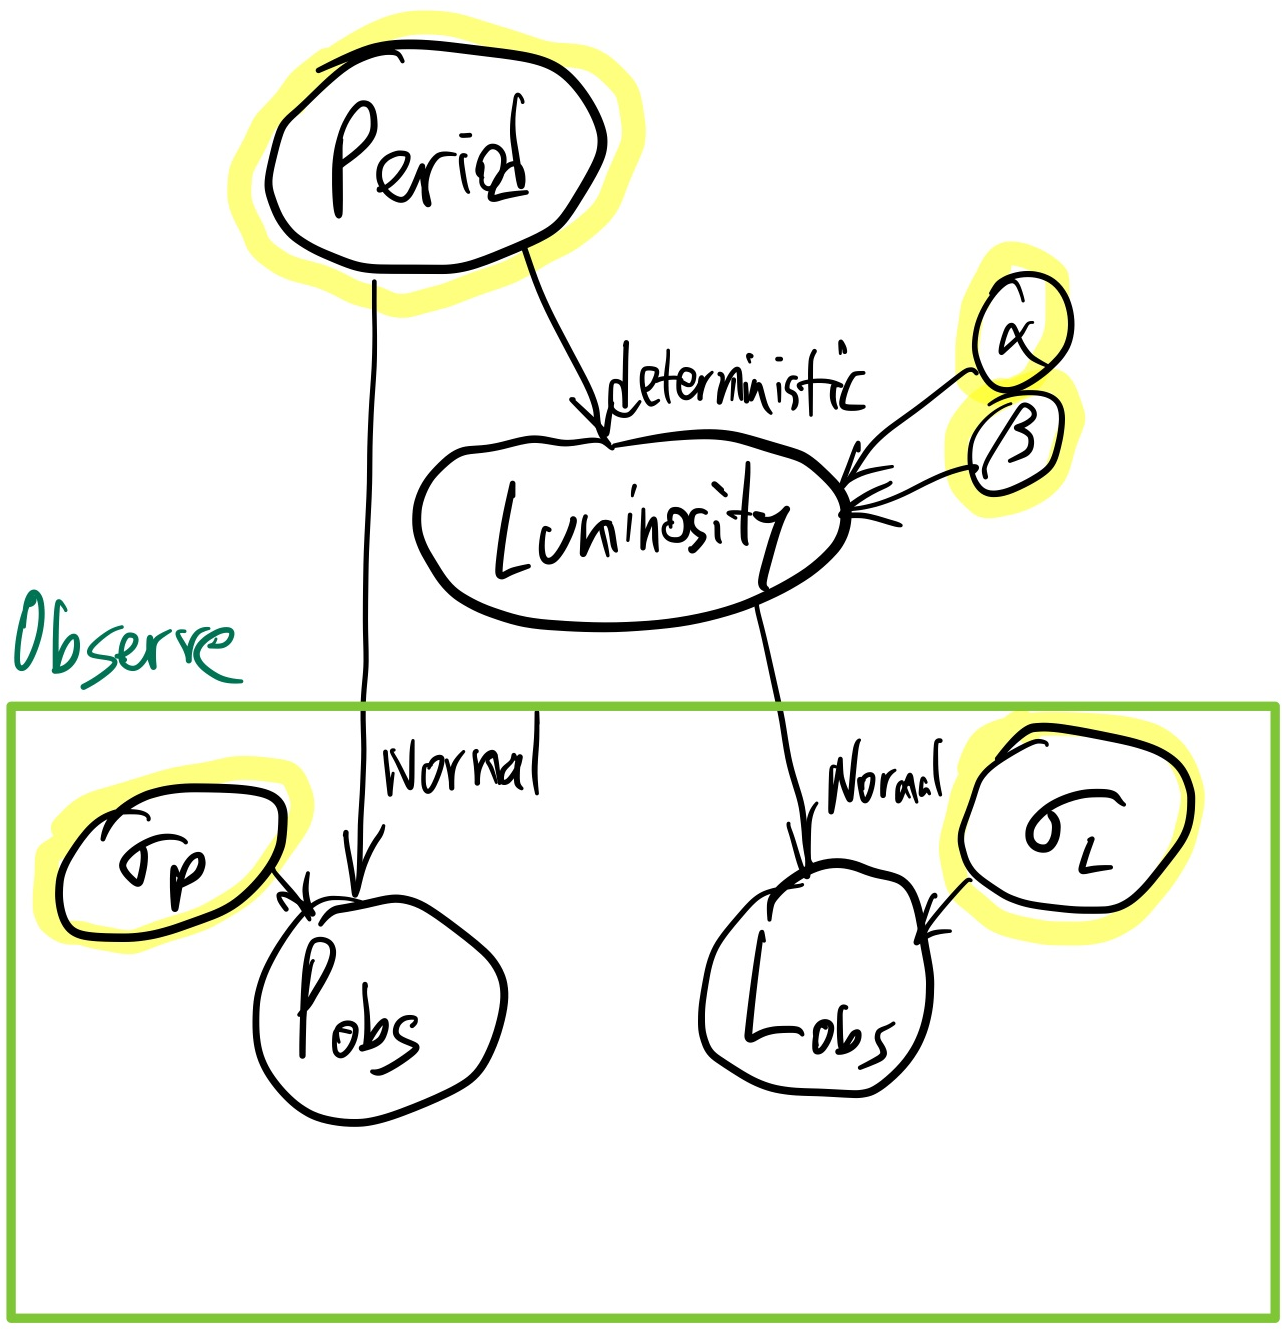 Period
α
deterministic
β
Luminosity
Observe
Normal
Normal
σL
σP
Pobs
Lobs